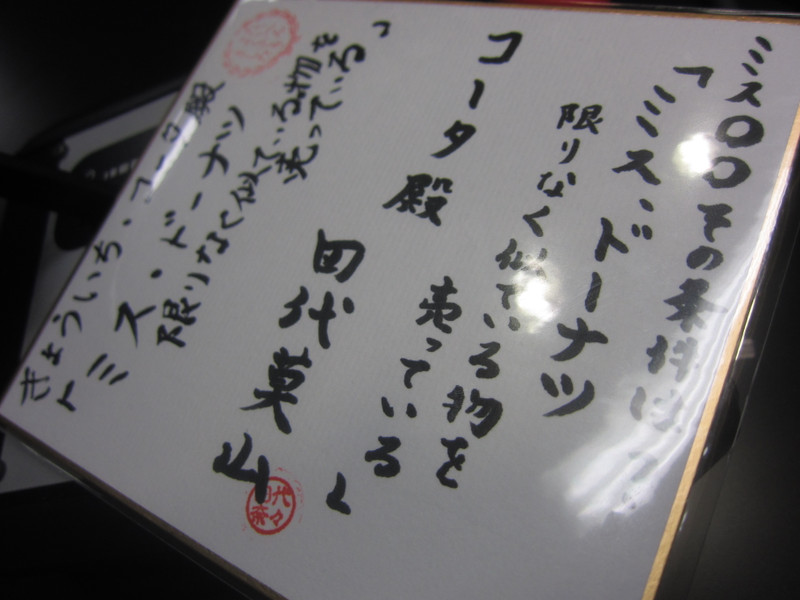 ミス〇〇その条件は
「ミス・ドーナツ
限りなく似ている物を
売っている」
コータ殿
きょういち・コータ殿
「ミス・ドーナツ
限りなく似ている物を
売っている」